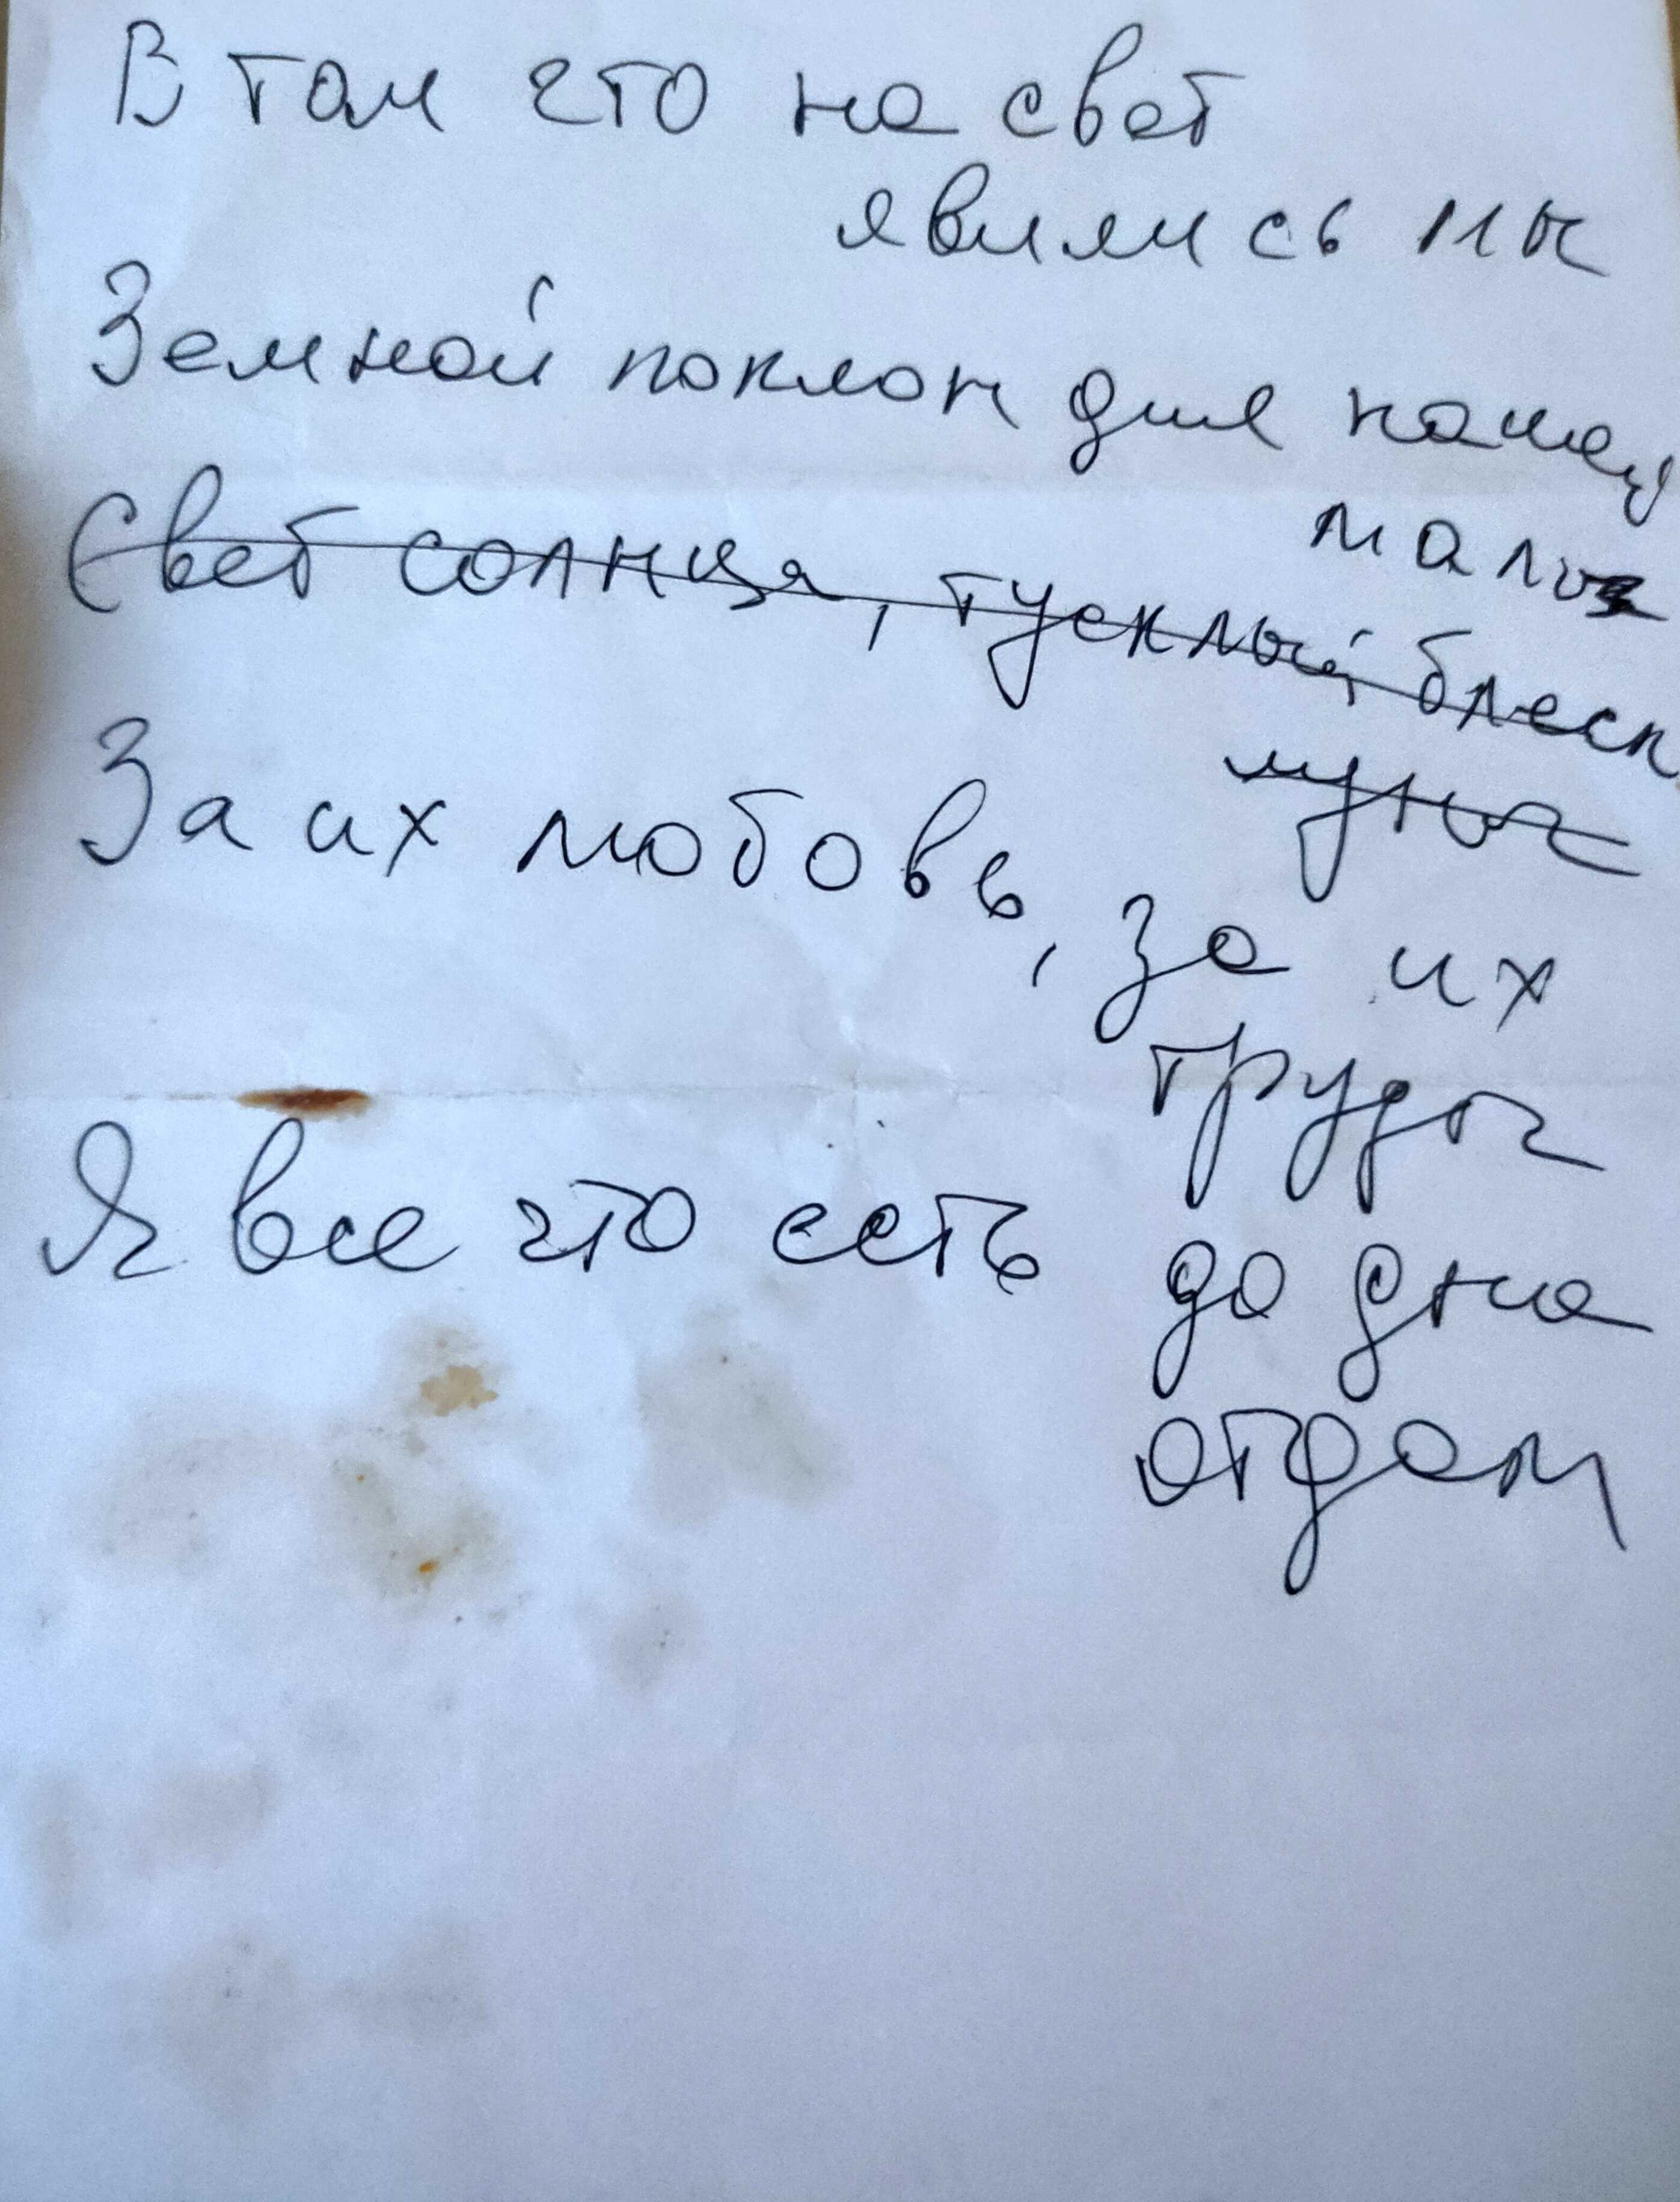 В том что на свет
явились мы
Земной поклон для нашей
Свет солнца, тусклый блеск
луны
За их любовь, за их
труды
Я все что есть до дна
отдам